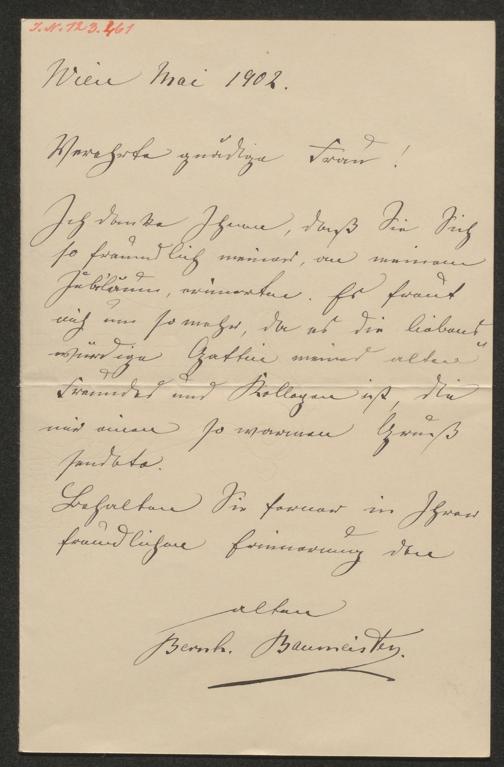 J.N. 123.461
Wien Mai 1902.
Verehrte gnädige Frau!
Ich danke Ihnen, daß Sie Sich
so freundlich meiner, an meinem
Jubiläum, erinnerten. Es freut
mich um so mehr, da es die liebens
würdige Gattin meines alten
Freundes und Kollegen ist, die
mir einen so warmen Gruß
sendete.
Behalten Sie ferner in Ihrer
freundlichen Erinnerung den
alten
Bernh. Baumeister.